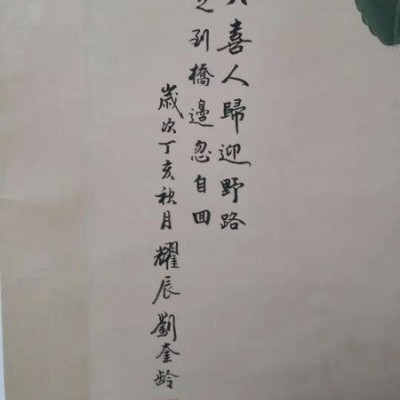 喜人歸迎野路
到橋邊忽自回
歲次丁亥秋月耀辰劉奎齡